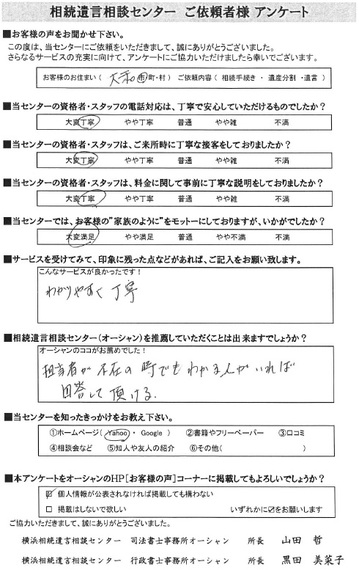 相続遺言相談センター ご依頼者様 アンケート
■お客様の声をお聞かせ下さい。
この度は、当センターにご依頼をいただきまして、誠にありがとうございました。
さらなるサービスの充実に向けて、アンケートにご協力いただけましたら幸いでございます。
お客様のお住まい( 大和 市・町・村 ) ご依頼内容( 相続手続き ・ 遺産分割 ・遺言 )
■当センターの資格者・スタッフの電話対応は、丁寧で安心していただけるものでしたか?
大変丁寧 やや丁寧 普通 やや雑 不満
■当センターの資格者・スタッフは、ご来所時に丁寧な接客をしておりましたか?
大変丁寧 やや丁寧 普通 やや雑 不満
■当センターの資格者・スタッフは、料金に関して事前に丁寧な説明をしておりましたか?
大変丁寧 やや丁寧 普通 やや雑 不満
■当センターでは、お客様の“家族のように”をモットーにしておりますが、いかがでしたか?
大変満足 やや満足 普通 やや不満 不満
■サービスを受けてみて、印象に残った点などがあれば、ご記入をお願い致します。
こんなサービスが良かったです!
わかりやすく丁寧
■相続遺言相談センター(オーシャン)を推薦していただくことは出来ますでしょうか?
オーシャンのココがお薦めでした!
担当者が不在の時でもわかる人がいれば
回答して頂ける。
■当センターを知ったきっかけをお教え下さい。
①ホームページ( Yahoo ・ Google ) ②書籍やフリーペーパー ③口コミ
④相談会など ⑤知人や友人の紹介 ⑥その他( )
■本アンケートをオーシャンのHP[お客様の声]コーナーに掲載してもよろしいでしょうか?
☑ 個人情報が公表されなければ掲載しても構わない
□ 掲載はしないで欲しい いずれかに☑をお願いします
ご協力いただきまして、誠にありがとうございました。
横浜相続遺言相談センター 司法書士事務所オーシャン 所長 山田 哲
横浜相続遺言相談センター 行政書士事務所オーシャン 所長 黒田 美菜子